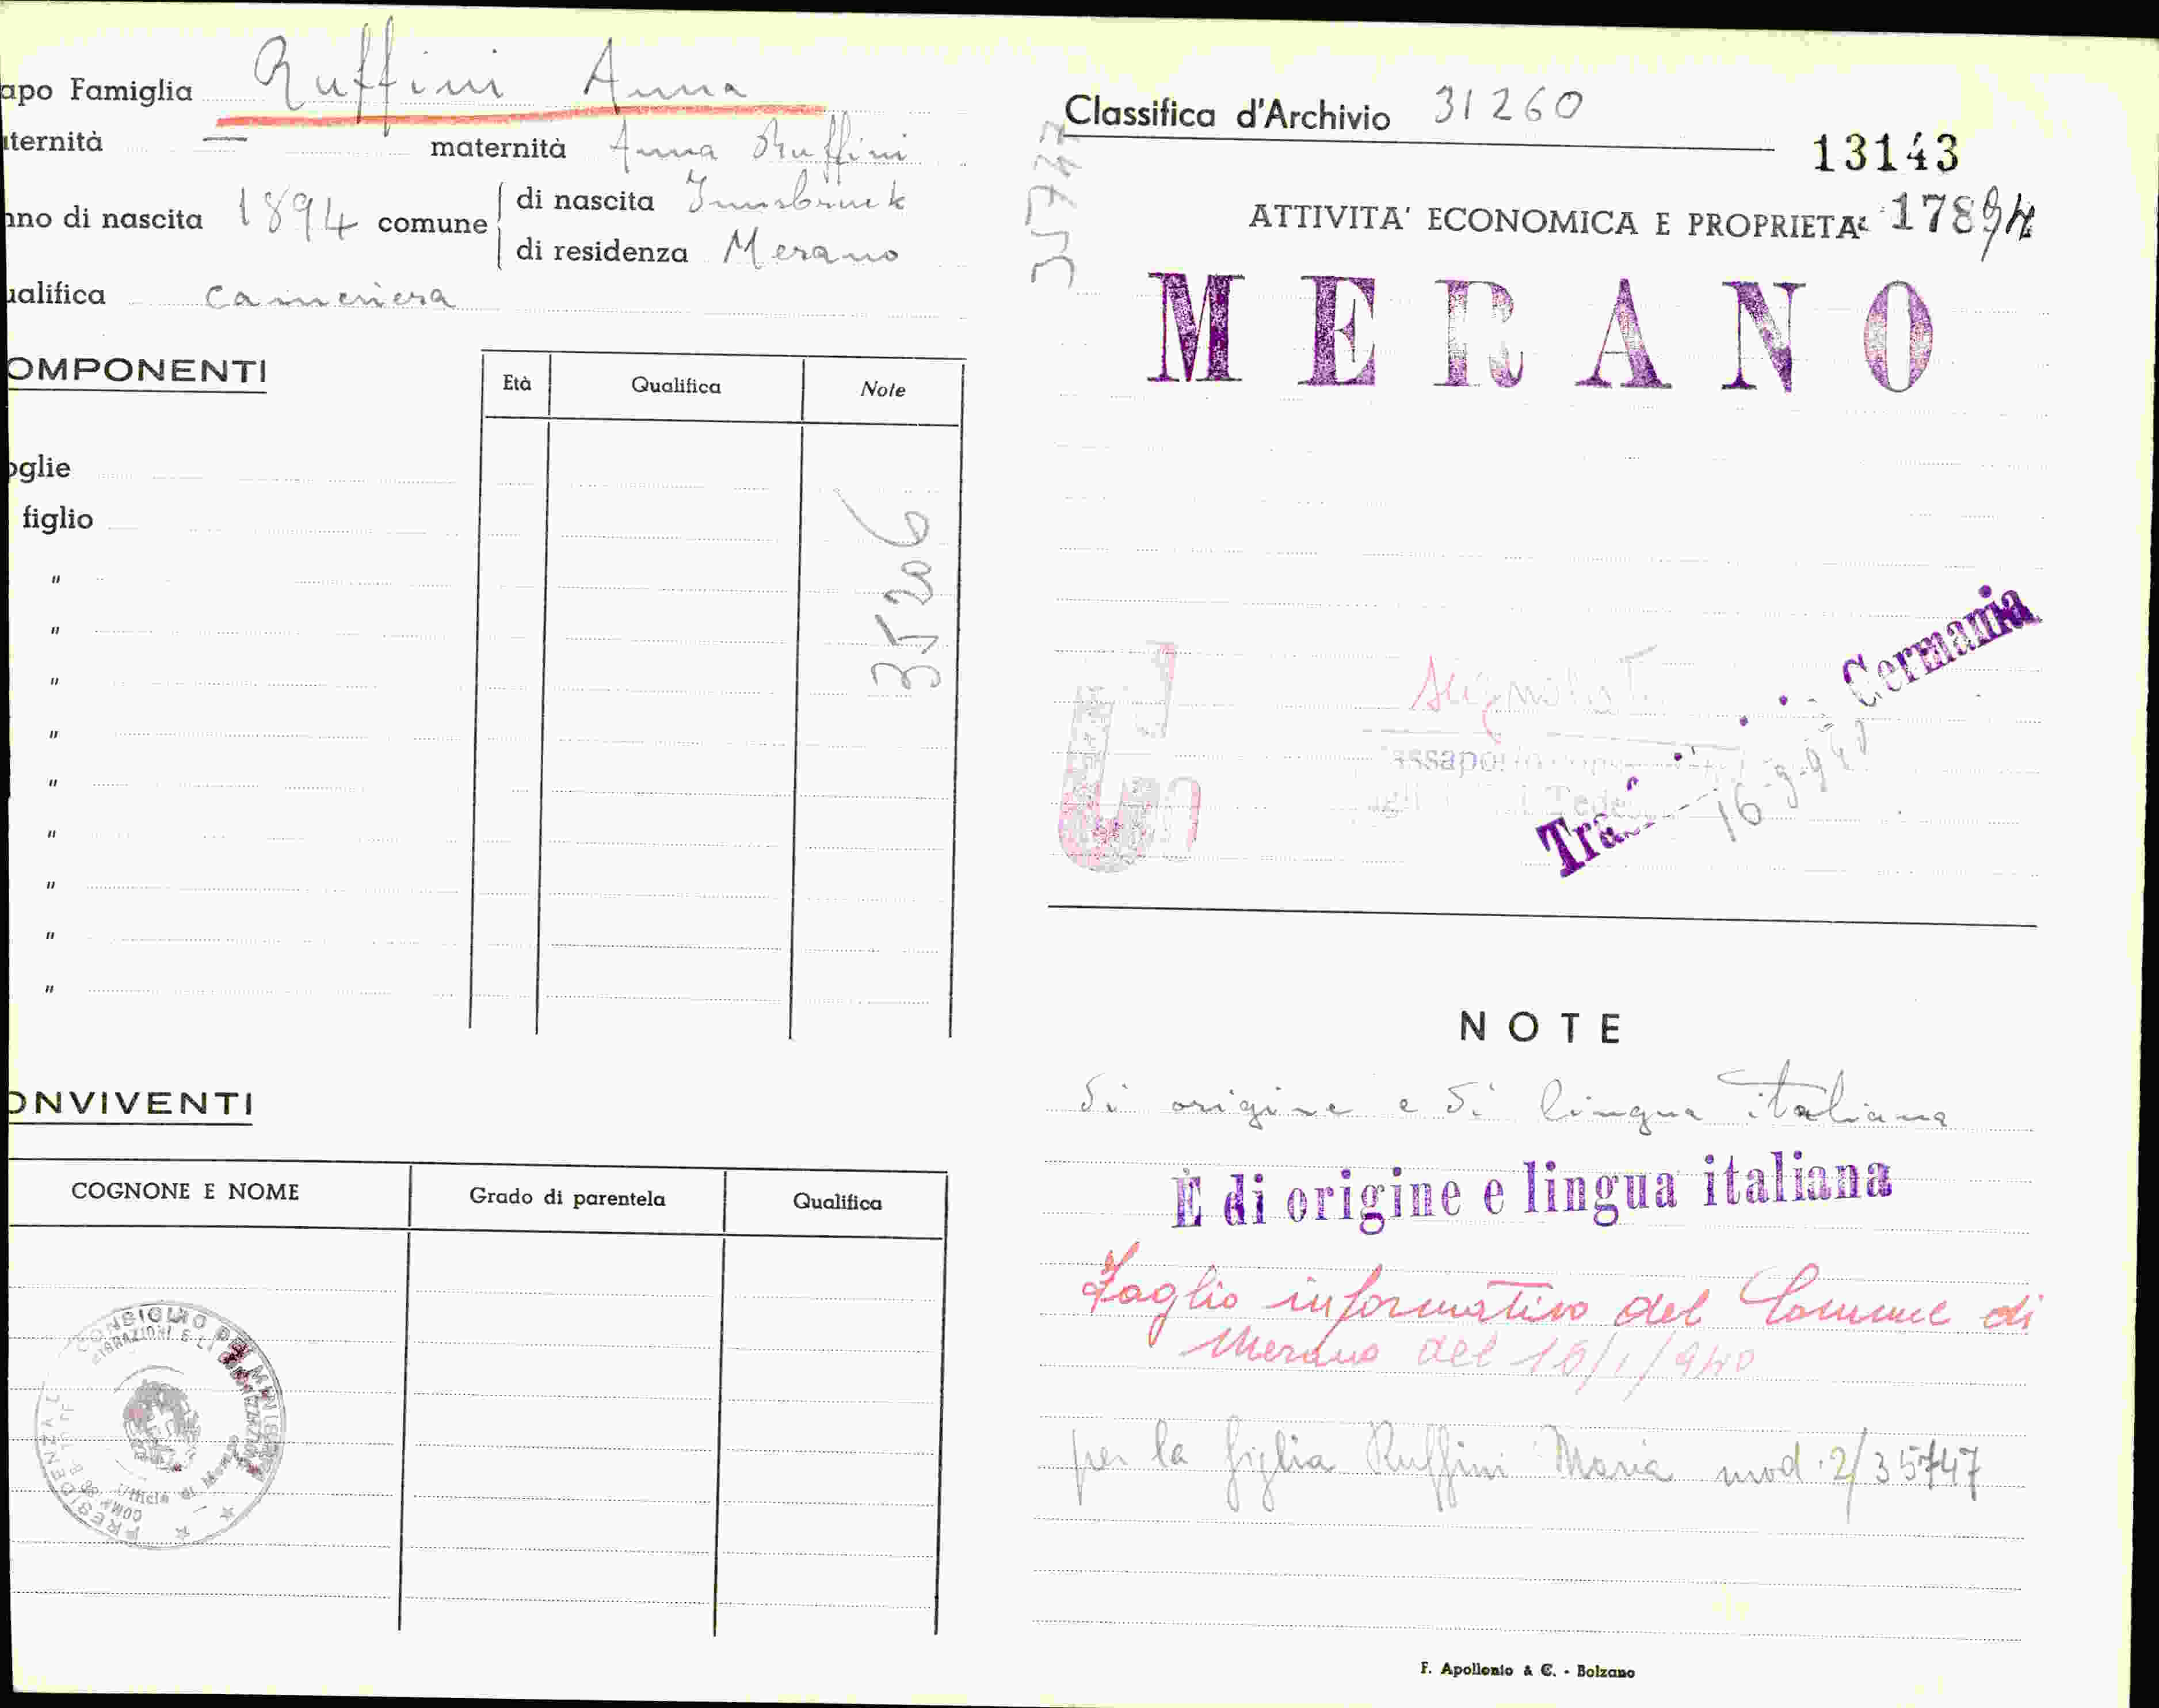 apo Famiglia Ruffini Anna
ternità — maternità Anna Ruffini
nno di nascita 1894 comune di nascita Innsbruck
di residenza Merano
ualifica cameriera
OMPONENTI
Età Qualifica Note
oglie
figlio
"
"
"
"
"
"
"
"
"
35206
ONVIVENTI
COGNONE E NOME Grado di parentela Qualifica
CONSIGLIO DEI MINISTRI
PRESIDENZA
Ufficio di
Classifica d'Archivio 31260
35747
13143
ATTIVITA' ECONOMICA E PROPRIETA' 17894
MERANO
Germania
16-9-940
NOTE
di origine e di lingua italiana
È di origine e lingua italiana
Foglio informativo del Comune di
Merano del 16/1/940
per la figlia Ruffini Maria mod. 2/35747
F. Apollonio & C. - Bolzano